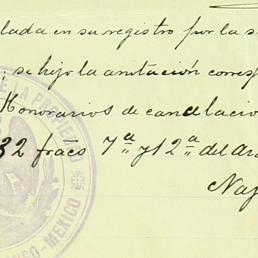 lada en su registro por la s
; se hijo la anotación corresp
Honorarios de cancelacio
32 fracs 7ª y 12ª del ara
Na
DE LA PROPIEDAD
MEXICO